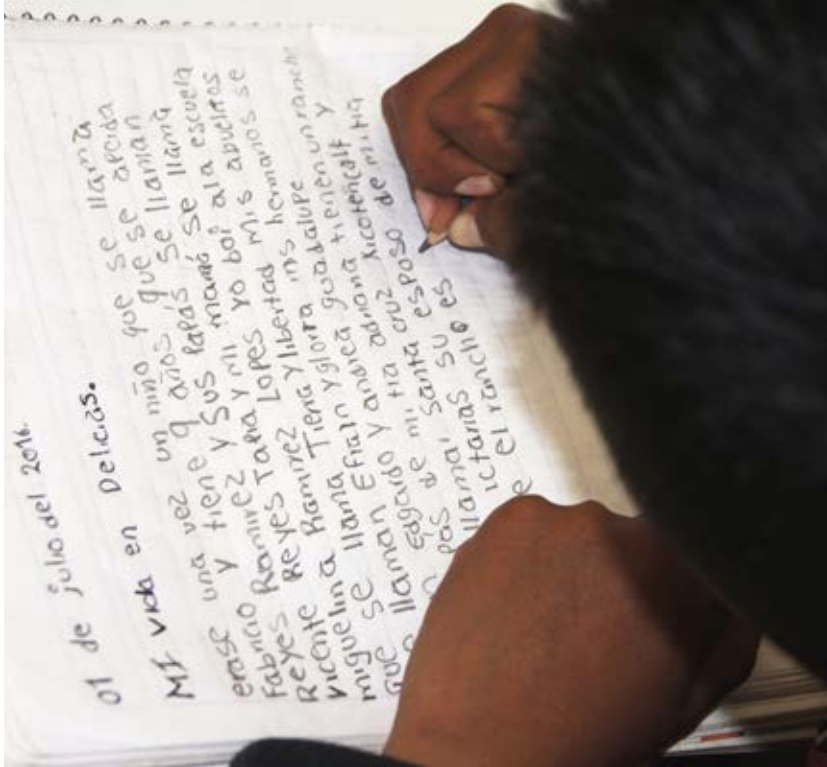 01 de julio del 2016.
MI vida en Delicias.
erase una vez un niño que se llama
Fabricio y tiene 9 años que se apeida
Reyes Ramirez y sus papás se llaman
Vicente Reyes Tapia y mi mamá se llama
miguelina Ramirez Lopes yo boi ala escuela
que se llama Tierra y libertad mis abuelitos
se llaman Efrain y gloria mis hermanos se
llaman Edgardo y andrea guadalupe
de mi tia adriana tienen un ranch
llama santa cruz xicotencalt y
su esposo de mi tia
el rancho es